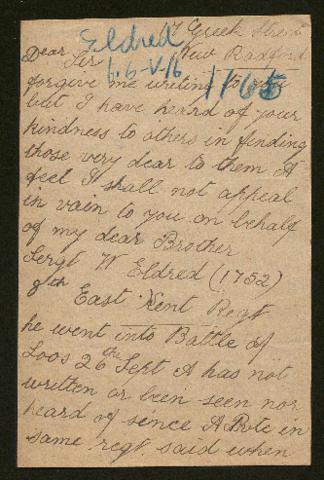 17 Greek Street
Eldred
New Radford
Dear Sir
6.6-V-16
1165
forgive me writing to you
but I have heard of your
kindness to others in finding
those very dear to them &
feel I shall not appeal
in vain to you on behalf
of my dear Brother
Sergt W Eldred (1752)
8th East Kent Regt
he went into Battle of
Loos 26the Sept & has not
written or been seen nor
heard of sence A Pvte in
same regt said when